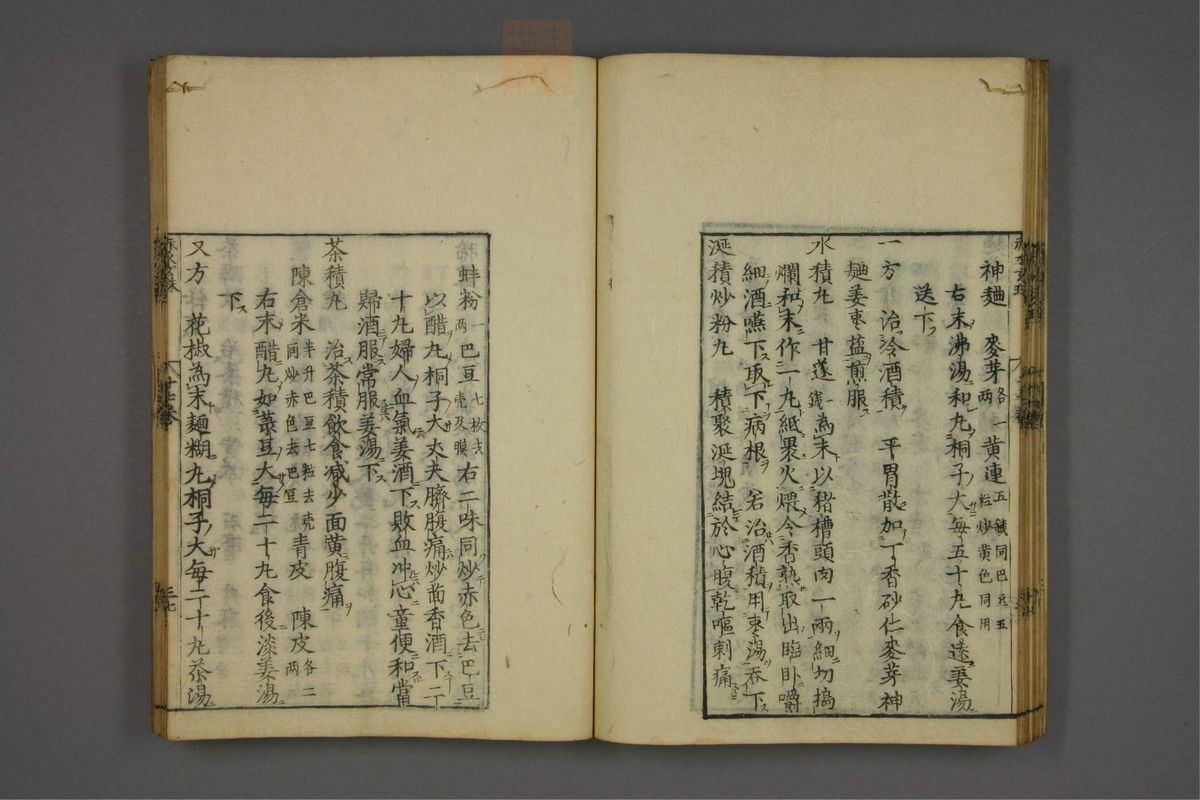 神麯　麥芽各一兩　黄連五錢同巴豆五粒炒黄色同用
右末沸湯和丸桐子大每五十丸食遠姜湯
送下
一方治冷酒積　平胃散加丁香砂仁麥芽神
麯姜枣盐煎服
水積丸　甘遂一錢為末以猪槽頭肉一兩細切搗
爛和末作一丸紙褁火煨令香熟取出臨卧嚼
細酒嚥下取下病根　若治酒積用枣湯吞下
涎積炒粉丸　積聚涎塊結於心腹乾嘔刺痛
蚌粉一兩　巴豆七枚去壳及膜　右二味同炒赤色去巴豆
以醋丸桐子大丈夫臍腹痛炒茴香酒下二
十丸婦人血氣姜酒下敗血冲心童便和當
歸酒服常服姜湯下
茶積丸　治茶積飲食减少面黄腹痛
陳倉米半升巴豆七粒去壳同炒赤色去巴豆　青皮　陳皮各二兩
右末醋丸如菉豆大每二十丸食後淡姜湯
下
又方　花椒為末麺糊丸桐子大每二十丸茶湯